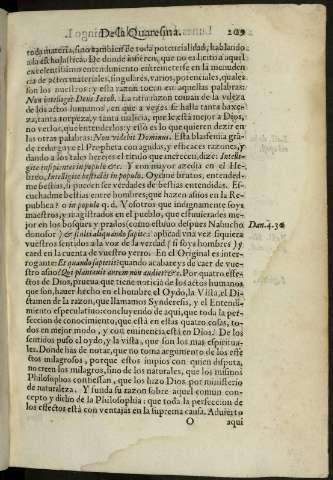 De la Quaresma. 209
toda materia, sino tambien de toda potencialidad, hablando
a la escholastica. De donde infieren, que no es licito a aquel
excelentissimo entendimiento entremeterse en la menuden
cia de actos materiales, singulares, varios, potenciales, quales
son los nuestros: y esta razon tocan en aquellas palabras:
Non intelliget Deus Iacob. La otra razon toman de la vileza
de los actos humanos, en que a vezes se halla tanta baxe-
za, tanta torpeza, y tanta malicia, que le està mejor a Dios,
no verlos, que entenderlos: y esso es lo que quieren dezir en
las otras palabras: Non videbit Dominus. Esta blasfemia gra-
de redarguye el Propheta con agudas, y eficaces razones, y
dando a los tales hereges el titulo que merecen, dize: Intelli-
gite insipientes in populo &c. Y con mayor atezea en el He-
breo, Intelligite bestiales in populo. Oydme brutos, entended-
me bestias, si pueden ser verdades de bestias entendidas. Es-
cuchadme bestias entre hombres; que hazen assi os en la Re-
publica? o in populo q. d. Y vosotros que indignamente soys
maestros, y magistrados en el pueblo, que estuuierades me-
jor en los bosques y prados (como estuuo despues Nabucho
donosor) & stulti aliquando sapite: despertad a priessa vna vez siquiera
vuestros sentidos a la voz de la verdad (si soys hombres) y
caed en la cuenta de vuestro yerro. En el Original es inter-
rogante: Et quando sapietis: quando acabareys de caer de vue-
stro asino? Qui plantauit aurem non audiet? &c. Por quatro effe-
ctos de Dios, prueua que tiene noticia de los actos humanos
que son, hauer hecho en el hombre el Oydo, la Vista, el Di-
ctamen de la razon, que llamamos Synderesis, y el Entendi-
miento especulatiuo: concluyendo de aqui, que toda la per-
feccion de conocimiento, que està en estas quatro cosas, to-
dos en mejor modo, y con eminencia està en Dios. De los
sentidos puso el oydo, y la vista, que son los mas espiritua-
les. Donde has de notar, que no toma argumento de los effe
ctos milagrosos, porque estos impios con quien disputa,
no creen los milagros, sino de los naturales, que los mismos
Philosophos confiessan, que los hizo Dios por ministerio
de naturaleza. Y funda su razon sobre aquel comun con-
cepto y dicho de la Philosophia: que toda la perfeccion de
los effectos està con ventajas en la suprema causa. Aduierto
O aqui
Dan. 4. 30